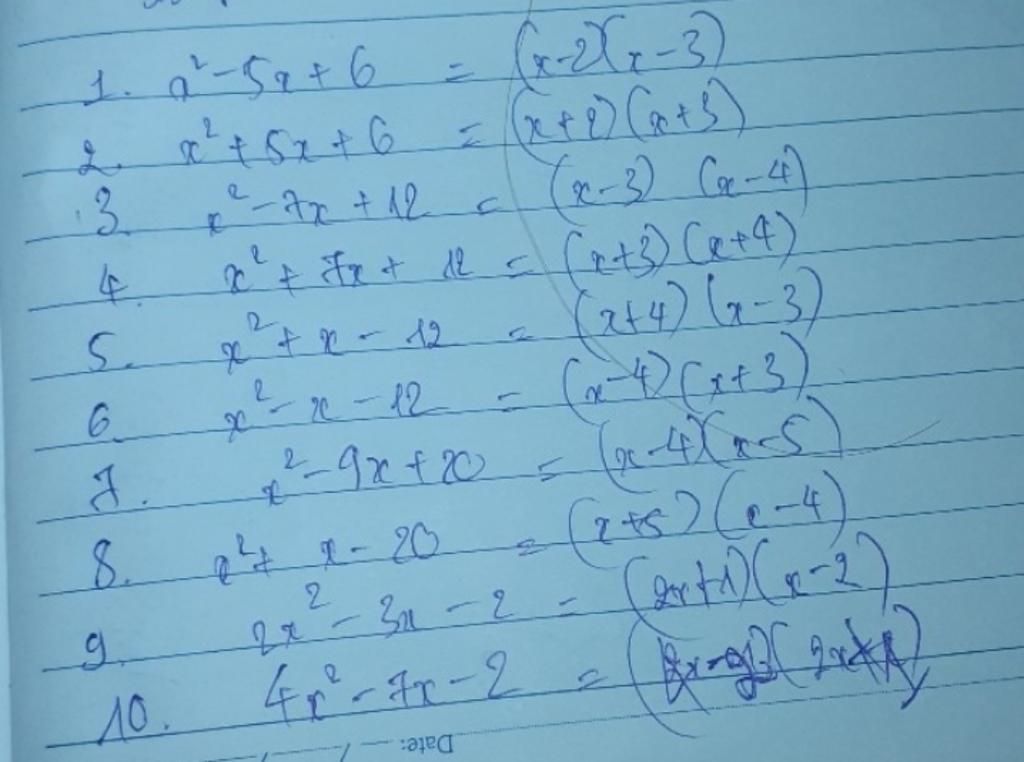 1. x² - 5x + 6 = (x-2)(x-3)
2. x² + 5x + 6 = (x+2)(x+3)
3. x² - 7x + 12 = (x-3) (x-4)
4. x² + 7x + 12 = (x+3)(x+4)
5. x² + x - 12 = (x+4)(x-3)
6. x² - x - 12 = (x-4)(x+3)
7. x² - 9x + 20 = (x-4)(x-5)
8. x² + x - 20 = (x+5)(x-4)
9. 2x² - 3x - 2 = (2x+1)(x-2)
10. 4x² - 7x - 2 = (
Date: